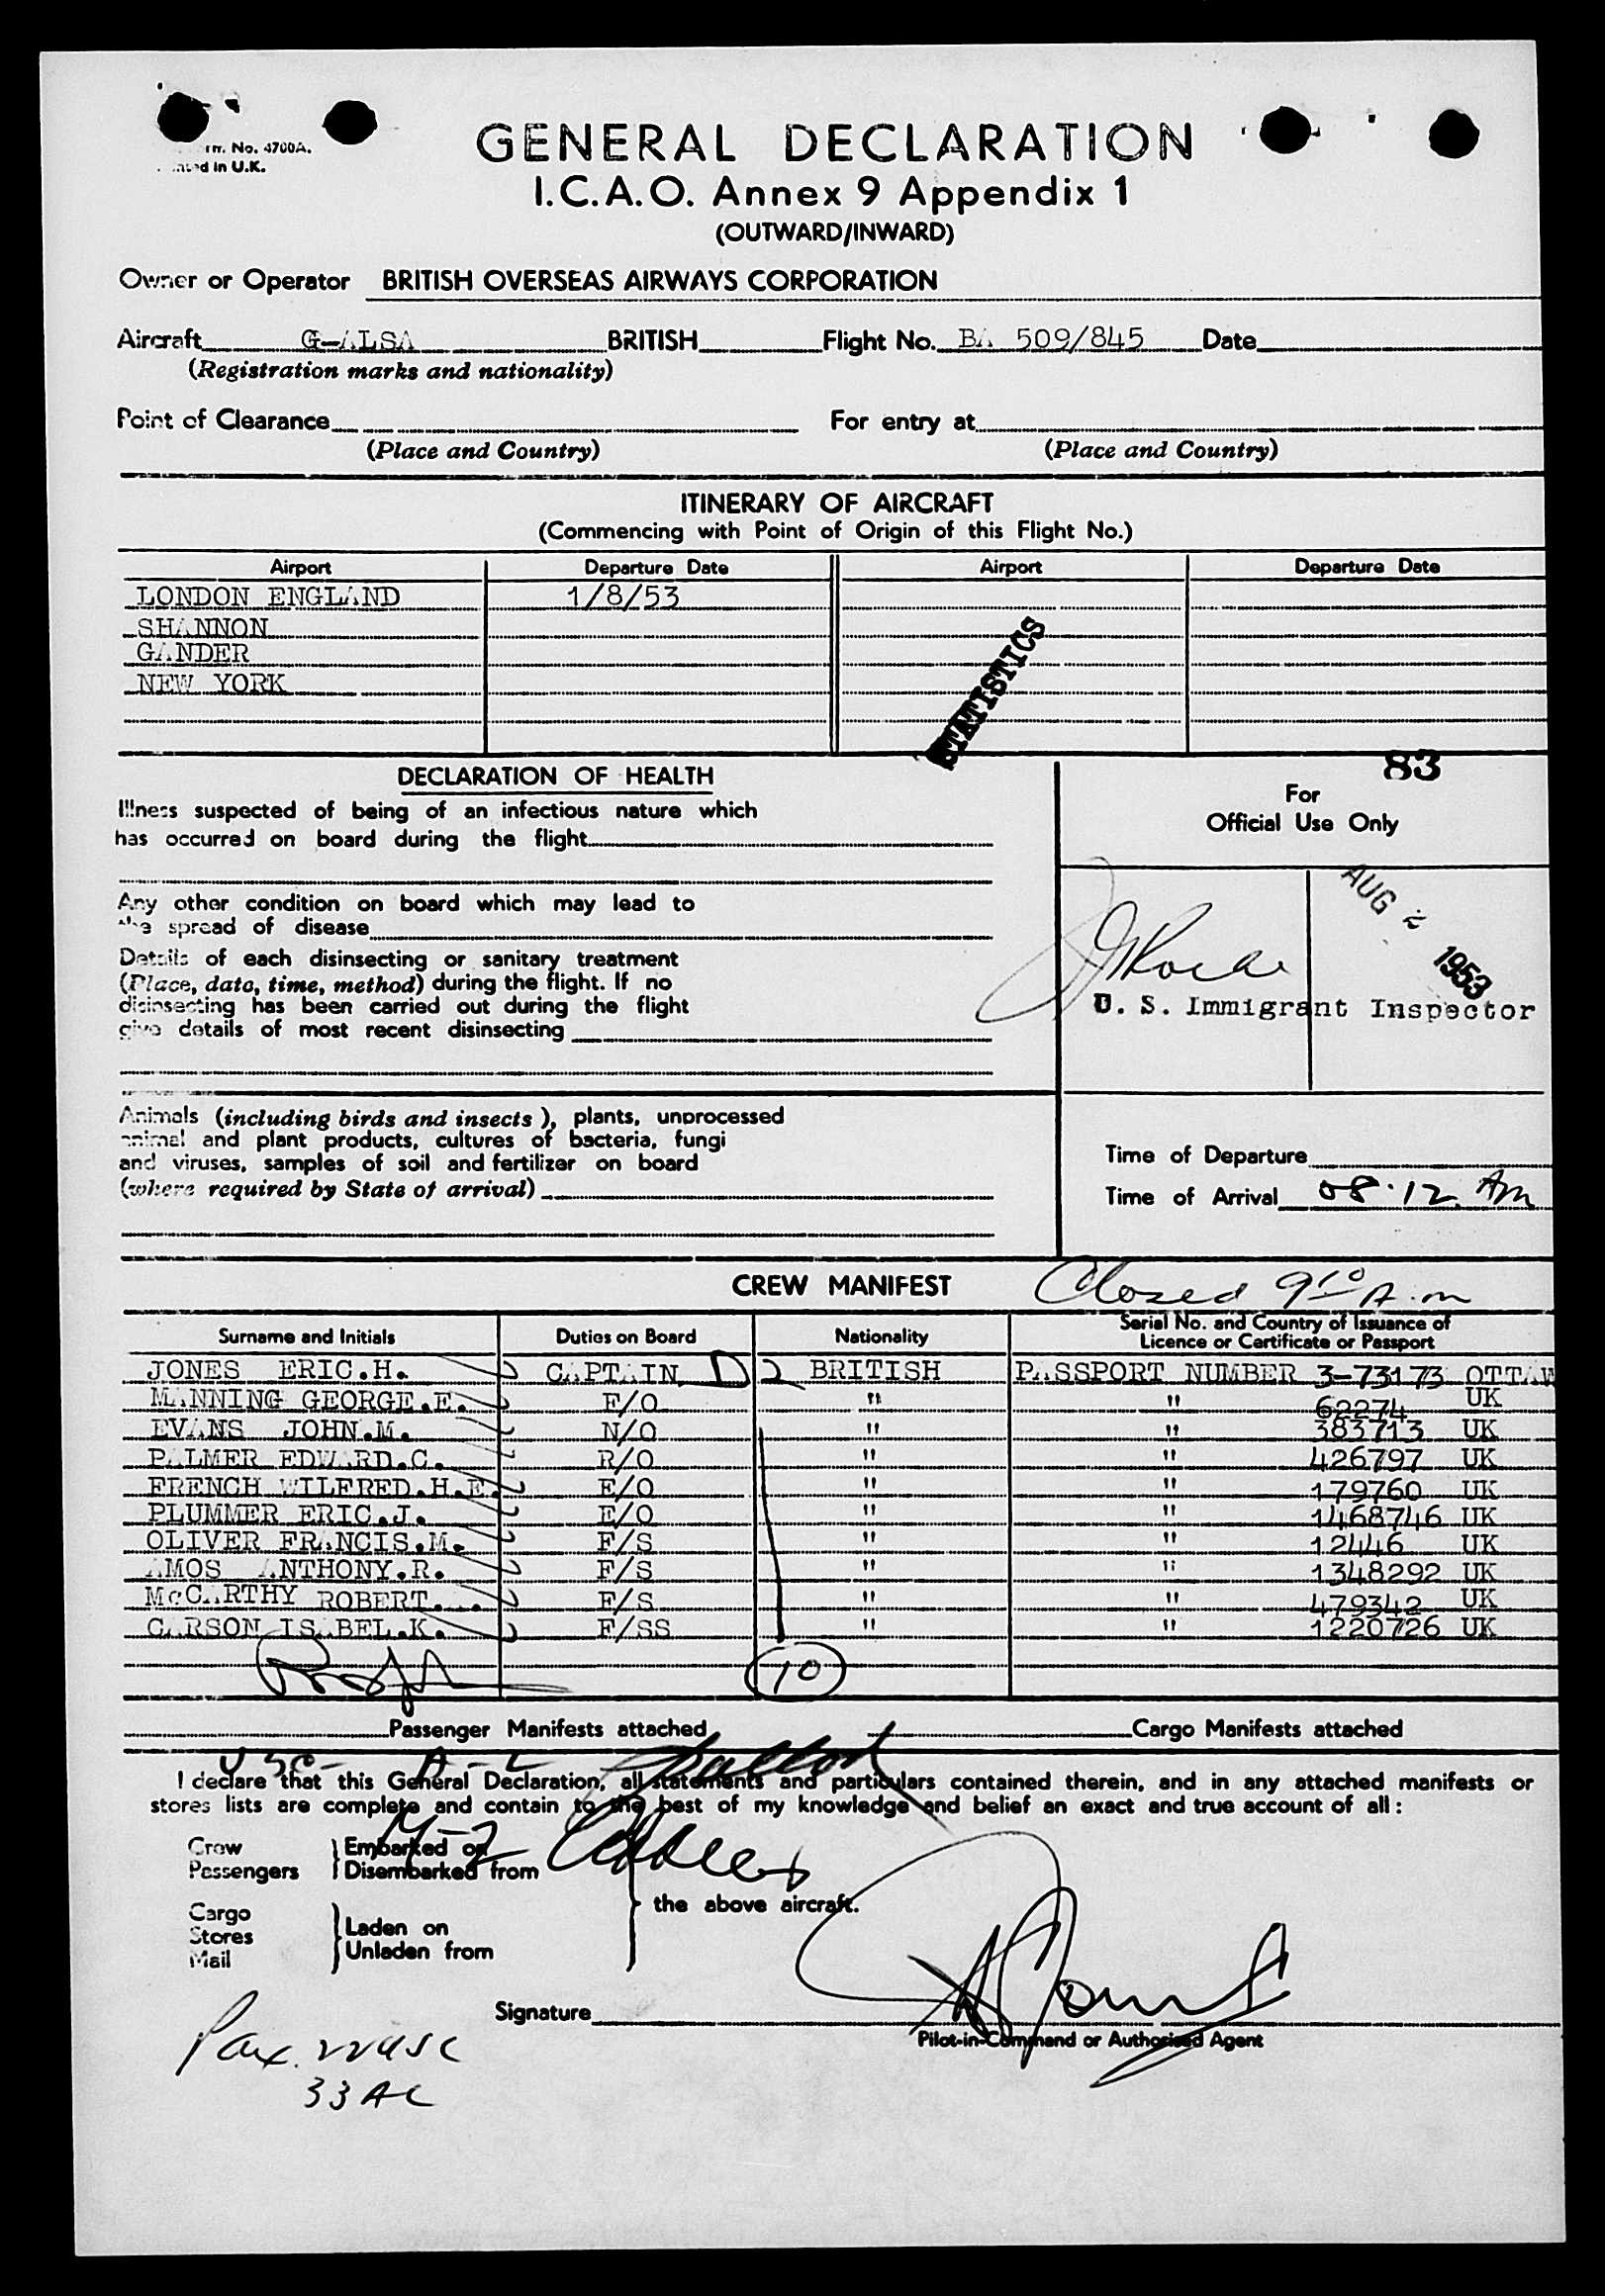 No. 4700A.
in U.K.
GENERAL DECLARATION
I.C.A.O. Annex 9 Appendix 1
(OUTWARD/INWARD)
Owner or Operator BRITISH OVERSEAS AIRWAYS CORPORATION
Aircraft G-ALSA BRITISH Flight No. BA 509/845 Date
(Registration marks and nationality)
Point of Clearance For entry at
(Place and Country) (Place and Country)
ITINERARY OF AIRCRAFT
(Commencing with Point of Origin of this Flight No.)
Airport Departure Date Airport Departure Date
LONDON ENGLAND 1/8/53
SHANNON
GANDER
NEW YORK
STATISTICS
83
DECLARATION OF HEALTH
Illness suspected of being of an infectious nature which
has occurred on board during the flight
For
Official Use Only
Any other condition on board which may lead to
the spread of disease
Details of each disinsecting or sanitary treatment
(Place, date, time, method) during the flight. If no
disinsecting has been carried out during the flight
give details of most recent disinsecting
AUG 2 1953
U. S. Immigrant Inspector
Animals (including birds and insects), plants, unprocessed
animal and plant products, cultures of bacteria, fungi
and viruses, samples of soil and fertilizer on board
(where required by State of arrival)
Time of Departure
Time of Arrival 08.12 AM
CREW MANIFEST Closed 9 10 A.m
Surname and Initials Duties on Board Nationality Serial No. and Country of Issuance of
Licence or Certificate or Passport
JONES ERIC.H. CAPTAIN D 2 BRITISH PASSPORT NUMBER 3-73173 OTTAW
MANNING GEORGE.E. F/O " " 62274 UK
EVANS JOHN.M. N/O " " 383713 UK
PALMER EDWARD.C. R/O " " 426797 UK
FRENCH WILFRED.H.E. E/O " " 179760 UK
PLUMMER ERIC.J. E/O " " 1468746 UK
OLIVER FRANCIS.M. F/S " " 12446 UK
AMOS ANTHONY.R. F/S " " 1348292 UK
McCARTHY ROBERT. F/S " " 479342 UK
CARSON ISABEL.K. F/SS " " 1220726 UK
10
Passenger Manifests attached Cargo Manifests attached
I declare that this General Declaration, all statements and particulars contained therein, and in any attached manifests or
stores lists are complete and contain to the best of my knowledge and belief an exact and true account of all :
Crew
Passengers
Embarked on
Disembarked from
Cargo
Stores
Mail
Laden on
Unladen from
the above aircraft.
Signature
Pilot-in-Command or Authorised Agent
Pax.
33 AL